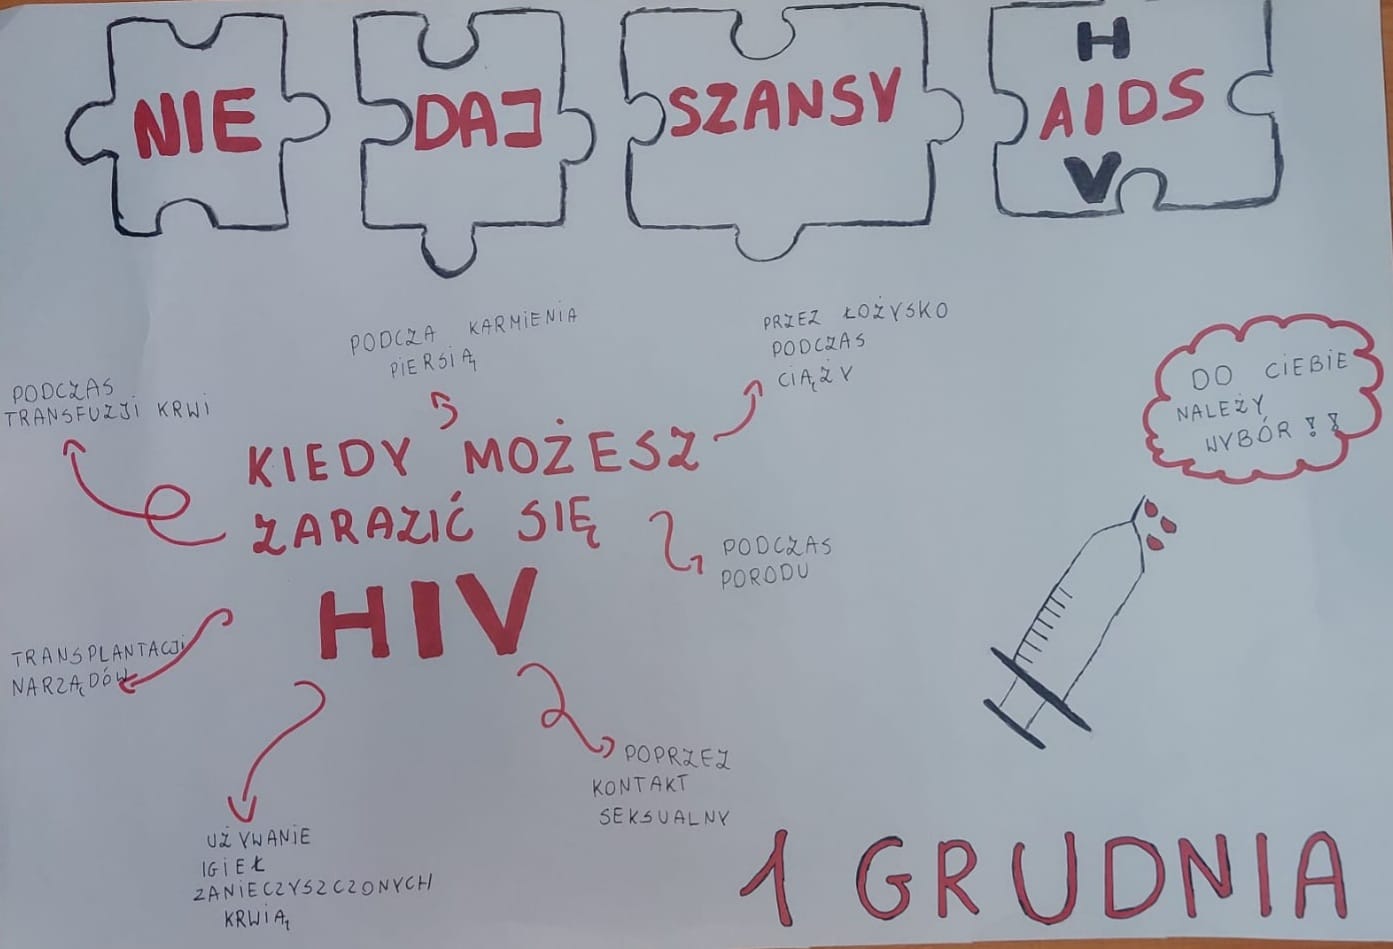 NIE DAJ SZANSY AIDS
H
V
PODCZA KARMIENIA
PIERSIĄ
PRZEZ ŁOŻYSKO
PODCZAS
CIĄŻY
PODCZAS
TRANSFUZJI KRWI
DO CIEBIE
NALEŻY
WYBÓR !!
KIEDY MOŻESZ
ZARAZIĆ SIĘ
HIV
PODCZAS
PORODU
TRANSPLANTACJI
NARZĄDÓW
POPRZEZ
KONTAKT
SEKSUALNY
UŻYWANIE
IGIEŁ
ZANIECZYSZCZONYCH
KRWIĄ
1 GRUDNIA